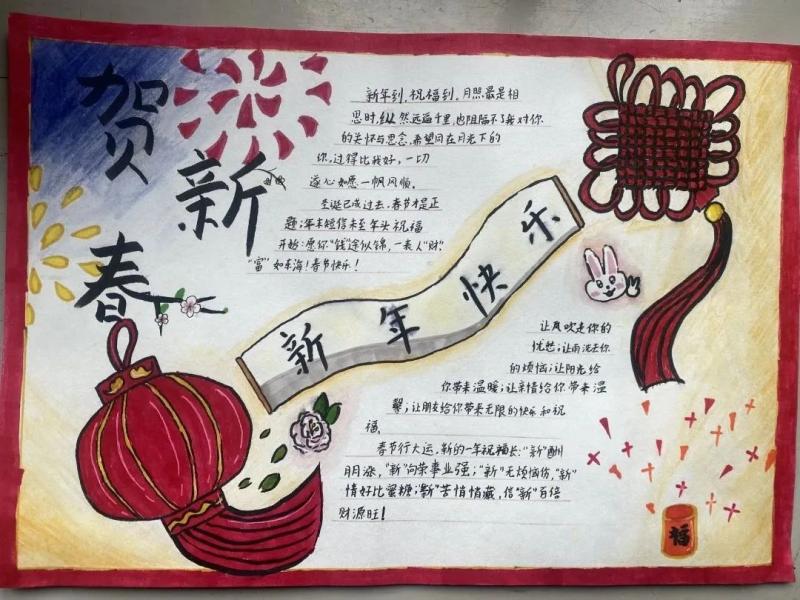 贺
新
春
新年到,祝福到,月照最是相
思时,纵然远遥千里,也阻隔不了我对你
的关怀与思念,希望同在月光下的
你,过得比我好,一切
遂心如愿一帆风顺。
圣诞已成过去,春节才是正
题;年末短信未至年头祝福
开始:愿你“钱”途似锦,一表人“财”
“富”如东海!春节快乐!
新年快乐
让风吹走你的
忧愁;让雨洗去你
的烦恼;让阳光给
你带来温暖;让亲情给你带来温
馨;让朋友给你带来无限的快乐和祝
福。
春节行大运,新的一年祝福长:“新”酬
月月涨,“新”向荣事业强;“新”无烦恼伤,“新”
情好比蜜糖;“新”苦悄悄藏,信“新”百倍
财源旺!
福